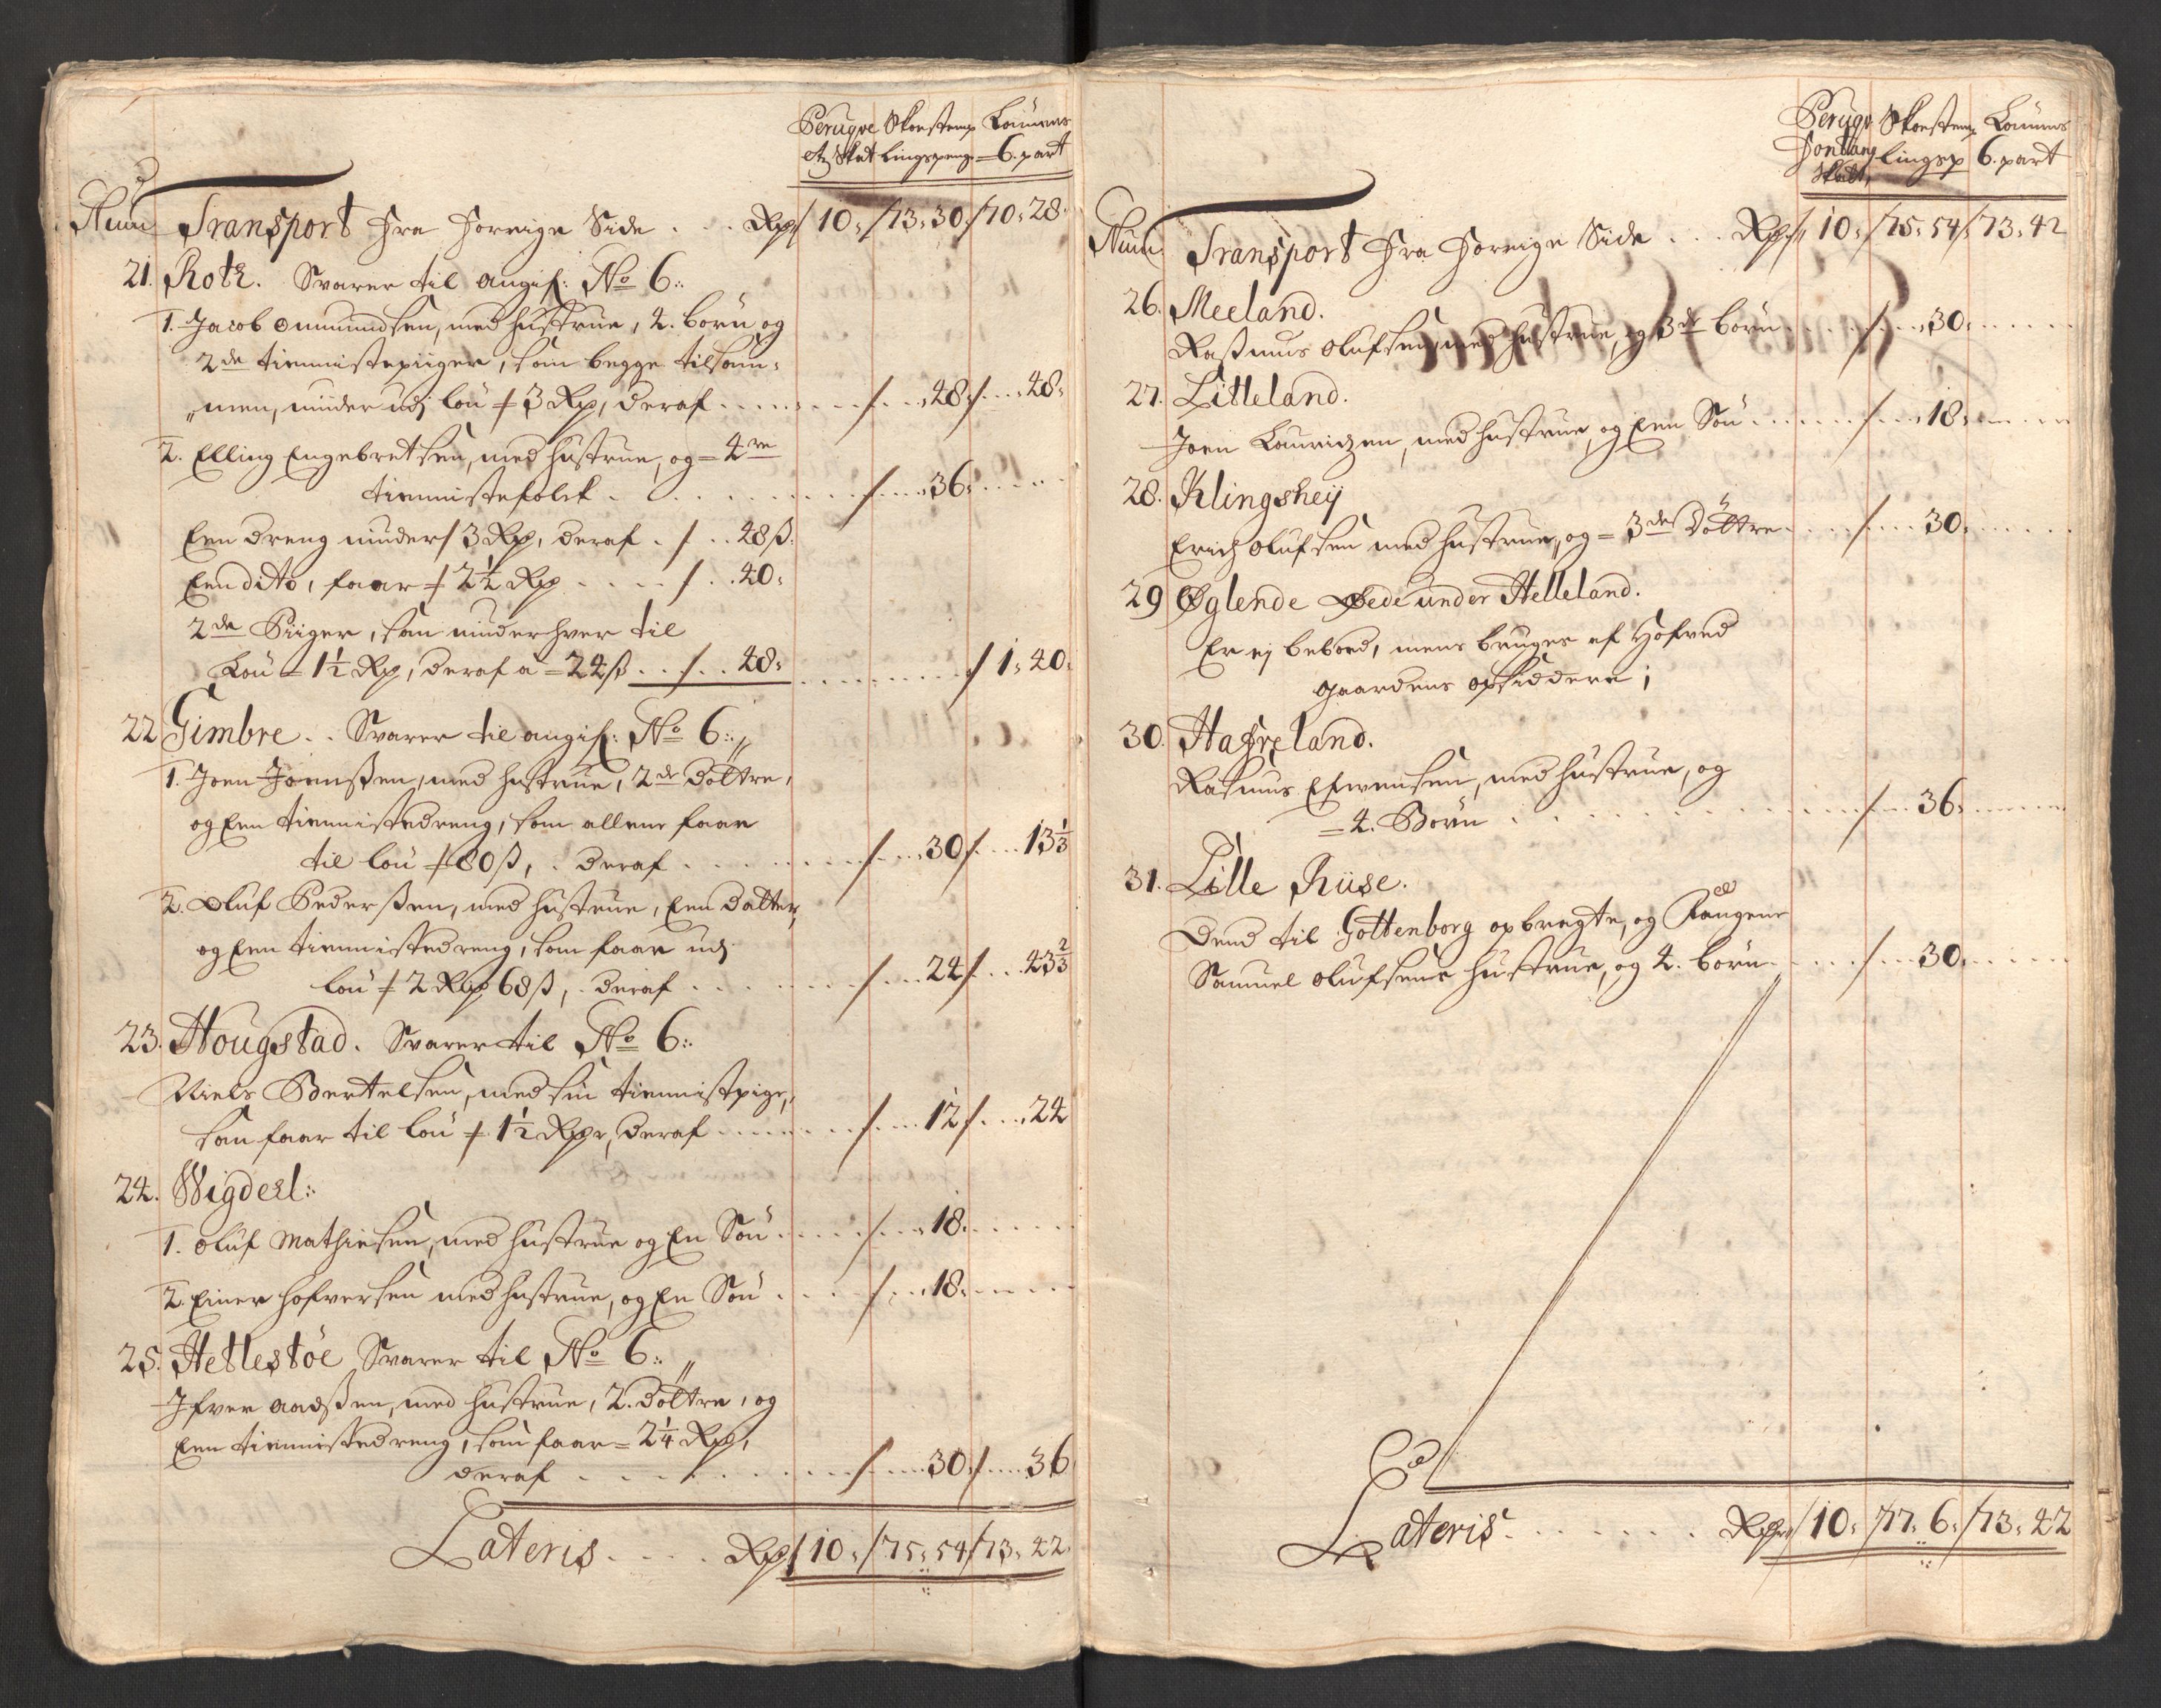 Perugve Skoesteus Lönnens
etz Skat lingspeng = 6. part
Num Transport Fra Forrige Side . . . Rdr / 10: / 73: 30: / 70: 28:
21. Rott. Svarer til angif: No 6:
1. Jacob Ommundsen, med hustrue, 4. börn og
2de tiennistepiiger, som begge tilsam-
men, nyder udj lön / 3 Rdr, deraf . . . . / . . 48: / . . 48:
2. Elling Engebretsen, med hustrue, og = 4re
tiennistefolck . . . . / . . 36: . . .
Een dreng nyder / 3 Rdr, deraf . / . . 48 ß:
Een dito, faar / 2½ Rdr . . . . / . . 40:
2de Piiger, som nyder hver til
Lön = 1½ Rdr, deraf a = 24 ß . . / . . 48: . . . . / 1: 40:
22 Gimbre . . Svarer til angif: No 6:
1. Joen Joenssen, med hustrue, 2de döttre,
og Een tiennistedreng, som allene faar
til lön / 80 ß, . deraf . . . . / . . 30 / . . . 13⅓
2. Oluf Pederssen, med hustrue, Een datter,
og Een tiennistedreng, som faar udj
lön / 2 Rdr 68 ß, . deraf . . . . / . . 24 / . . . 43⅔
23. Hougstad. Svarer til No 6:
Niels Bertelsen, med sin tiennistpige,
som faar til lön / 1½ Rdr, deraf . . . . / . . . 12 / . . . 24
24. Wigdeel:
1. Oluf Mathiesen, med hustrue og En Sön . . . . / . . . 18: . . . .
2. Einer hofversen med hustrue, og En Sön . . . . / . . . 18: . . . .
25. Hetlestöe Svarer til No 6:
Ifver Aadssen, med hustrue, 2. döttre, og
Een tiennistedreng, som faar = 2¼ Rdr,
deraf . . . . / . . . 30: / . . . 36
Lateris . . . . Rdr / 10: / 75: 54 / 73: 42:
Perugv Skoesteus Lönnens
Fontang lingsp 6. part
Skatt,
Num Transport Fra Forrige Side . . . Rdr / 10: / 75: 54 / 73: 42
26. Meeland.
Rasmus Olufsen, med hustrue, og 3de börn . . . . / . . . 30: . . . .
27. Litleland.
Joen Lauridzen, med hustrue, og Een Sön . . . . / . . . 18: . . . .
28. Klingsheÿ
Erich Olufsen med hustrue, og = 3de Döttre . . . . / . . . 30: . . . .
29 Øglende Øede under Helleland.
Er ej beboed, mens bruges af Hofved
gaardens opsiddere;
30. Hafreland.
Rasmus Efvensen, med hustrue, og
= 4. Börn . . . . / . . . 36: . . . .
31. Lille Riise.
Dend til Gottenborg opbragte, og fangene
Samuel Olufsens hustrue, og 4. börn . . . . / . . . 30: . . . .
Lateris . . . . Rdr / 10: / 77: 6: / 73: 42